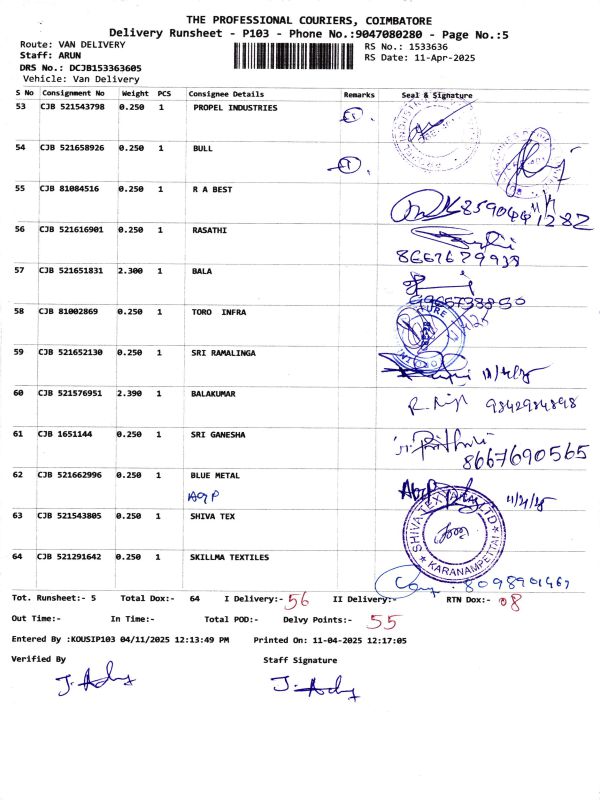 THE PROFESSIONAL COURIERS, COIMBATORE
Delivery Runsheet - P103 - Phone No.:9047080280 - Page No.:5
Route: VAN DELIVERY RS No.: 1533636
Staff: ARUN RS Date: 11-Apr-2025
DRS No.: DCJB153363605
Vehicle: Van Delivery
S No Consignment No Weight PCS Consignee Details Remarks Seal & Signature
53 CJB 521543798 0.250 1 PROPEL INDUSTRIES
54 CJB 521658926 0.250 1 BULL
55 CJB 81084516 0.250 1 R A BEST
8590441282
56 CJB 521616901 0.250 1 RASATHI
8667679938
57 CJB 521651831 2.300 1 BALA
58 CJB 81002869 0.250 1 TORO INFRA
59 CJB 521652130 0.250 1 SRI RAMALINGA
11/4/25
60 CJB 521576951 2.390 1 BALAKUMAR
9842984898
61 CJB 1651144 0.250 1 SRI GANESHA
8667690565
62 CJB 521662996 0.250 1 BLUE METAL
11/4/25
63 CJB 521543805 0.250 1 SHIVA TEX
SHIVA TEXYARN LTD
KARANAMPETTAI
64 CJB 521291642 0.250 1 SKILLMA TEXTILES
8098901467
Tot. Runsheet:- 5 Total Dox:- 64 I Delivery:- 56 II Delivery:- RTN Dox:- 08
Out Time:- In Time:- Total POD:- Delvy Points:- 55
Entered By :KOUSIP103 04/11/2025 12:13:49 PM Printed On: 11-04-2025 12:17:05
Verified By Staff Signature